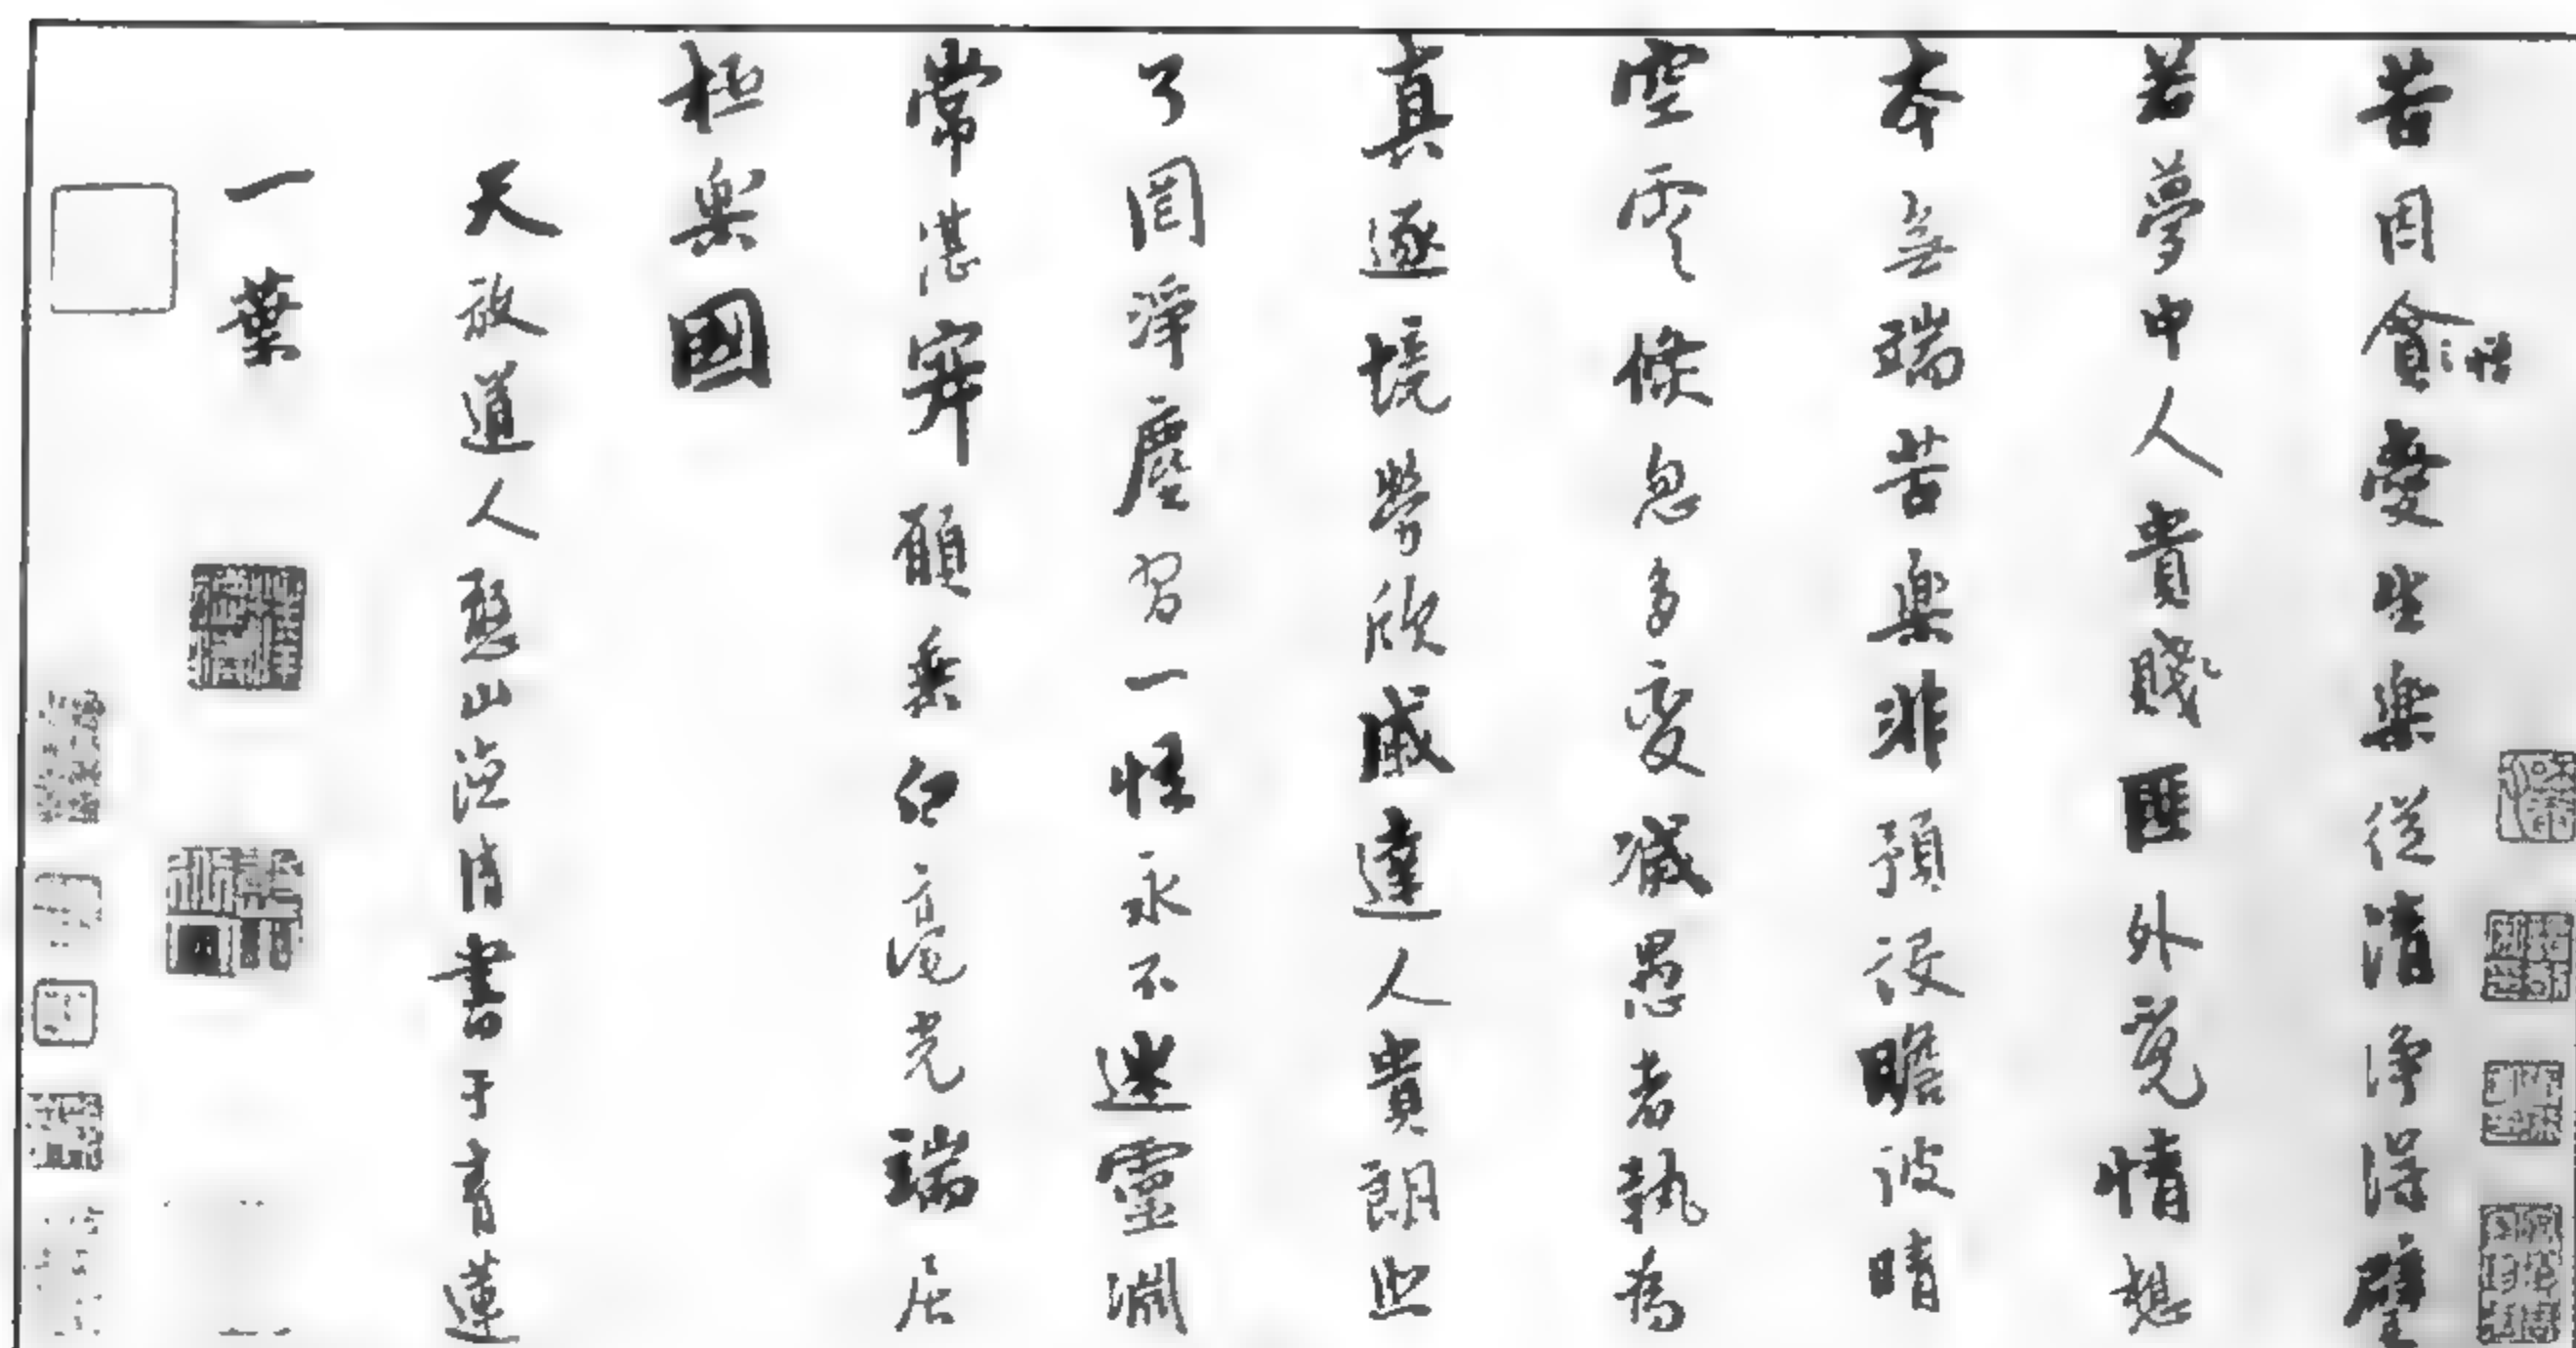 苦因貪愛生樂從清淨得璧
慳
若夢中人貴賤匪外覓情想
本無瑞苦樂非預設瞻彼晴
空雲倏忽多变滅愚者執為
真逐境勞欣戚達人貴朗照
了圓淨塵習一悟永不迷靈淵
常湛寂願垂白毫光瑞居
極樂國
天放道人憨山德清書于青蓮
一葉